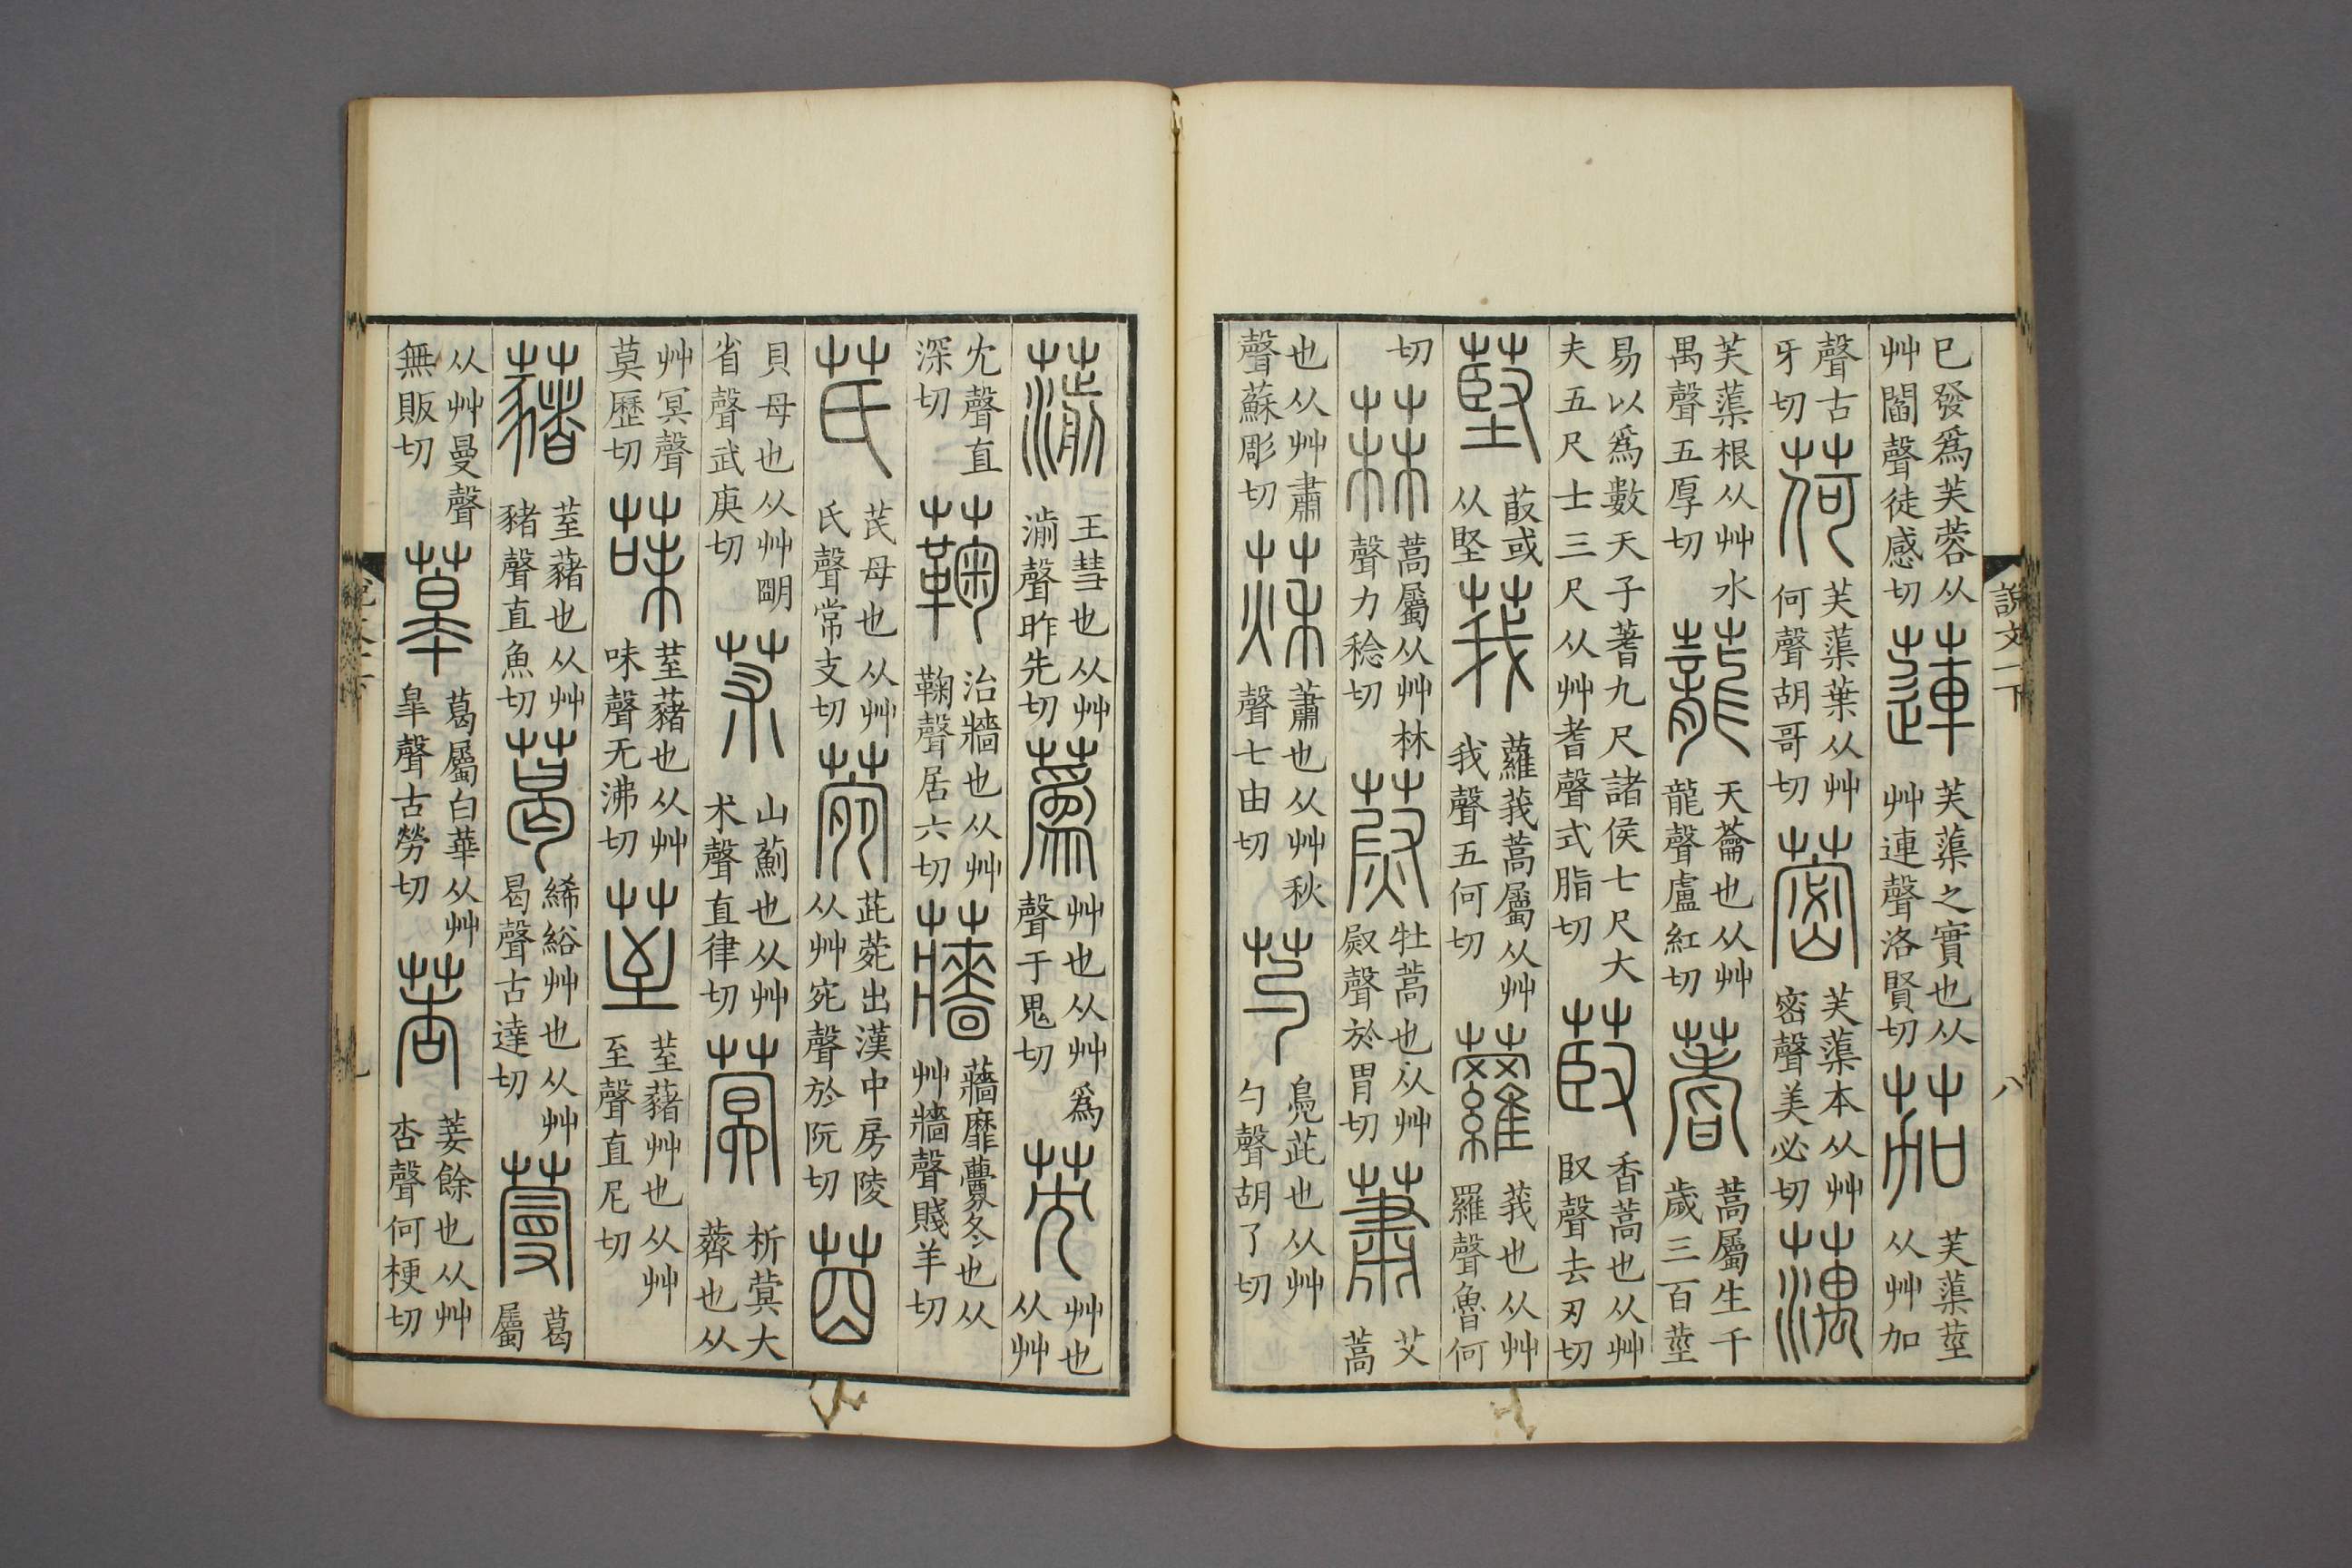 說文一下 八
已發爲芙蓉从艸閻聲徒感切 蓮 芙蕖之實也从艸連聲洛賢切 茄 芙蕖莖从艸加
聲古牙切 荷 芙蕖葉从艸何聲胡哥切 蔤 芙蕖本从艸密聲美必切 蕅
芙蕖根从艸水禺聲五厚切 蘢 天蘥也从艸龍聲盧紅切 蓍 蒿屬生千歲三百莖
易以爲數天子蓍九尺諸侯七尺大夫五尺士三尺从艸耆聲式脂切 菣 香蒿也从艸臤聲去刃切
䕲 菣或从堅 莪 蘿莪蒿屬从艸我聲五何切 蘿 莪也从艸羅聲魯何
切 菻 蒿屬从艸林聲力稔切 蔚 牡蒿也从艸㷉聲於胃切 蕭 艾蒿
也从艸肅聲蘇彫切 萩 蕭也从艸秋聲七由切 芍 鳧茈也从艸勺聲胡了切
葥 王彗也从艸湔聲昨先切 蔿 艸也从艸爲聲于鬼切 芫 艸也从艸
冘聲直深切 蘜 治牆也从艸鞠聲居六切 蘠 蘠靡虋冬也从艸牆聲賤羊切
芪 芪母也从艸氏聲常支切 菀 茈菀出漢中房陵从艸宛聲於阮切 莔
貝母也从艸朙省聲武庚切 荗 山薊也从艸术聲直律切 蓂 析蓂大薺也从
艸冥聲莫歷切 菋 荎藸也从艸味聲无沸切 荎 荎藸艸也从艸至聲直尼切
藸 荎藸也从艸豬聲直魚切 葛 絺綌艸也从艸曷聲古達切 蔓 葛屬
从艸曼聲無販切 葛屬白華从艸皐聲古勞切 莕 菨餘也从艸杏聲何梗切